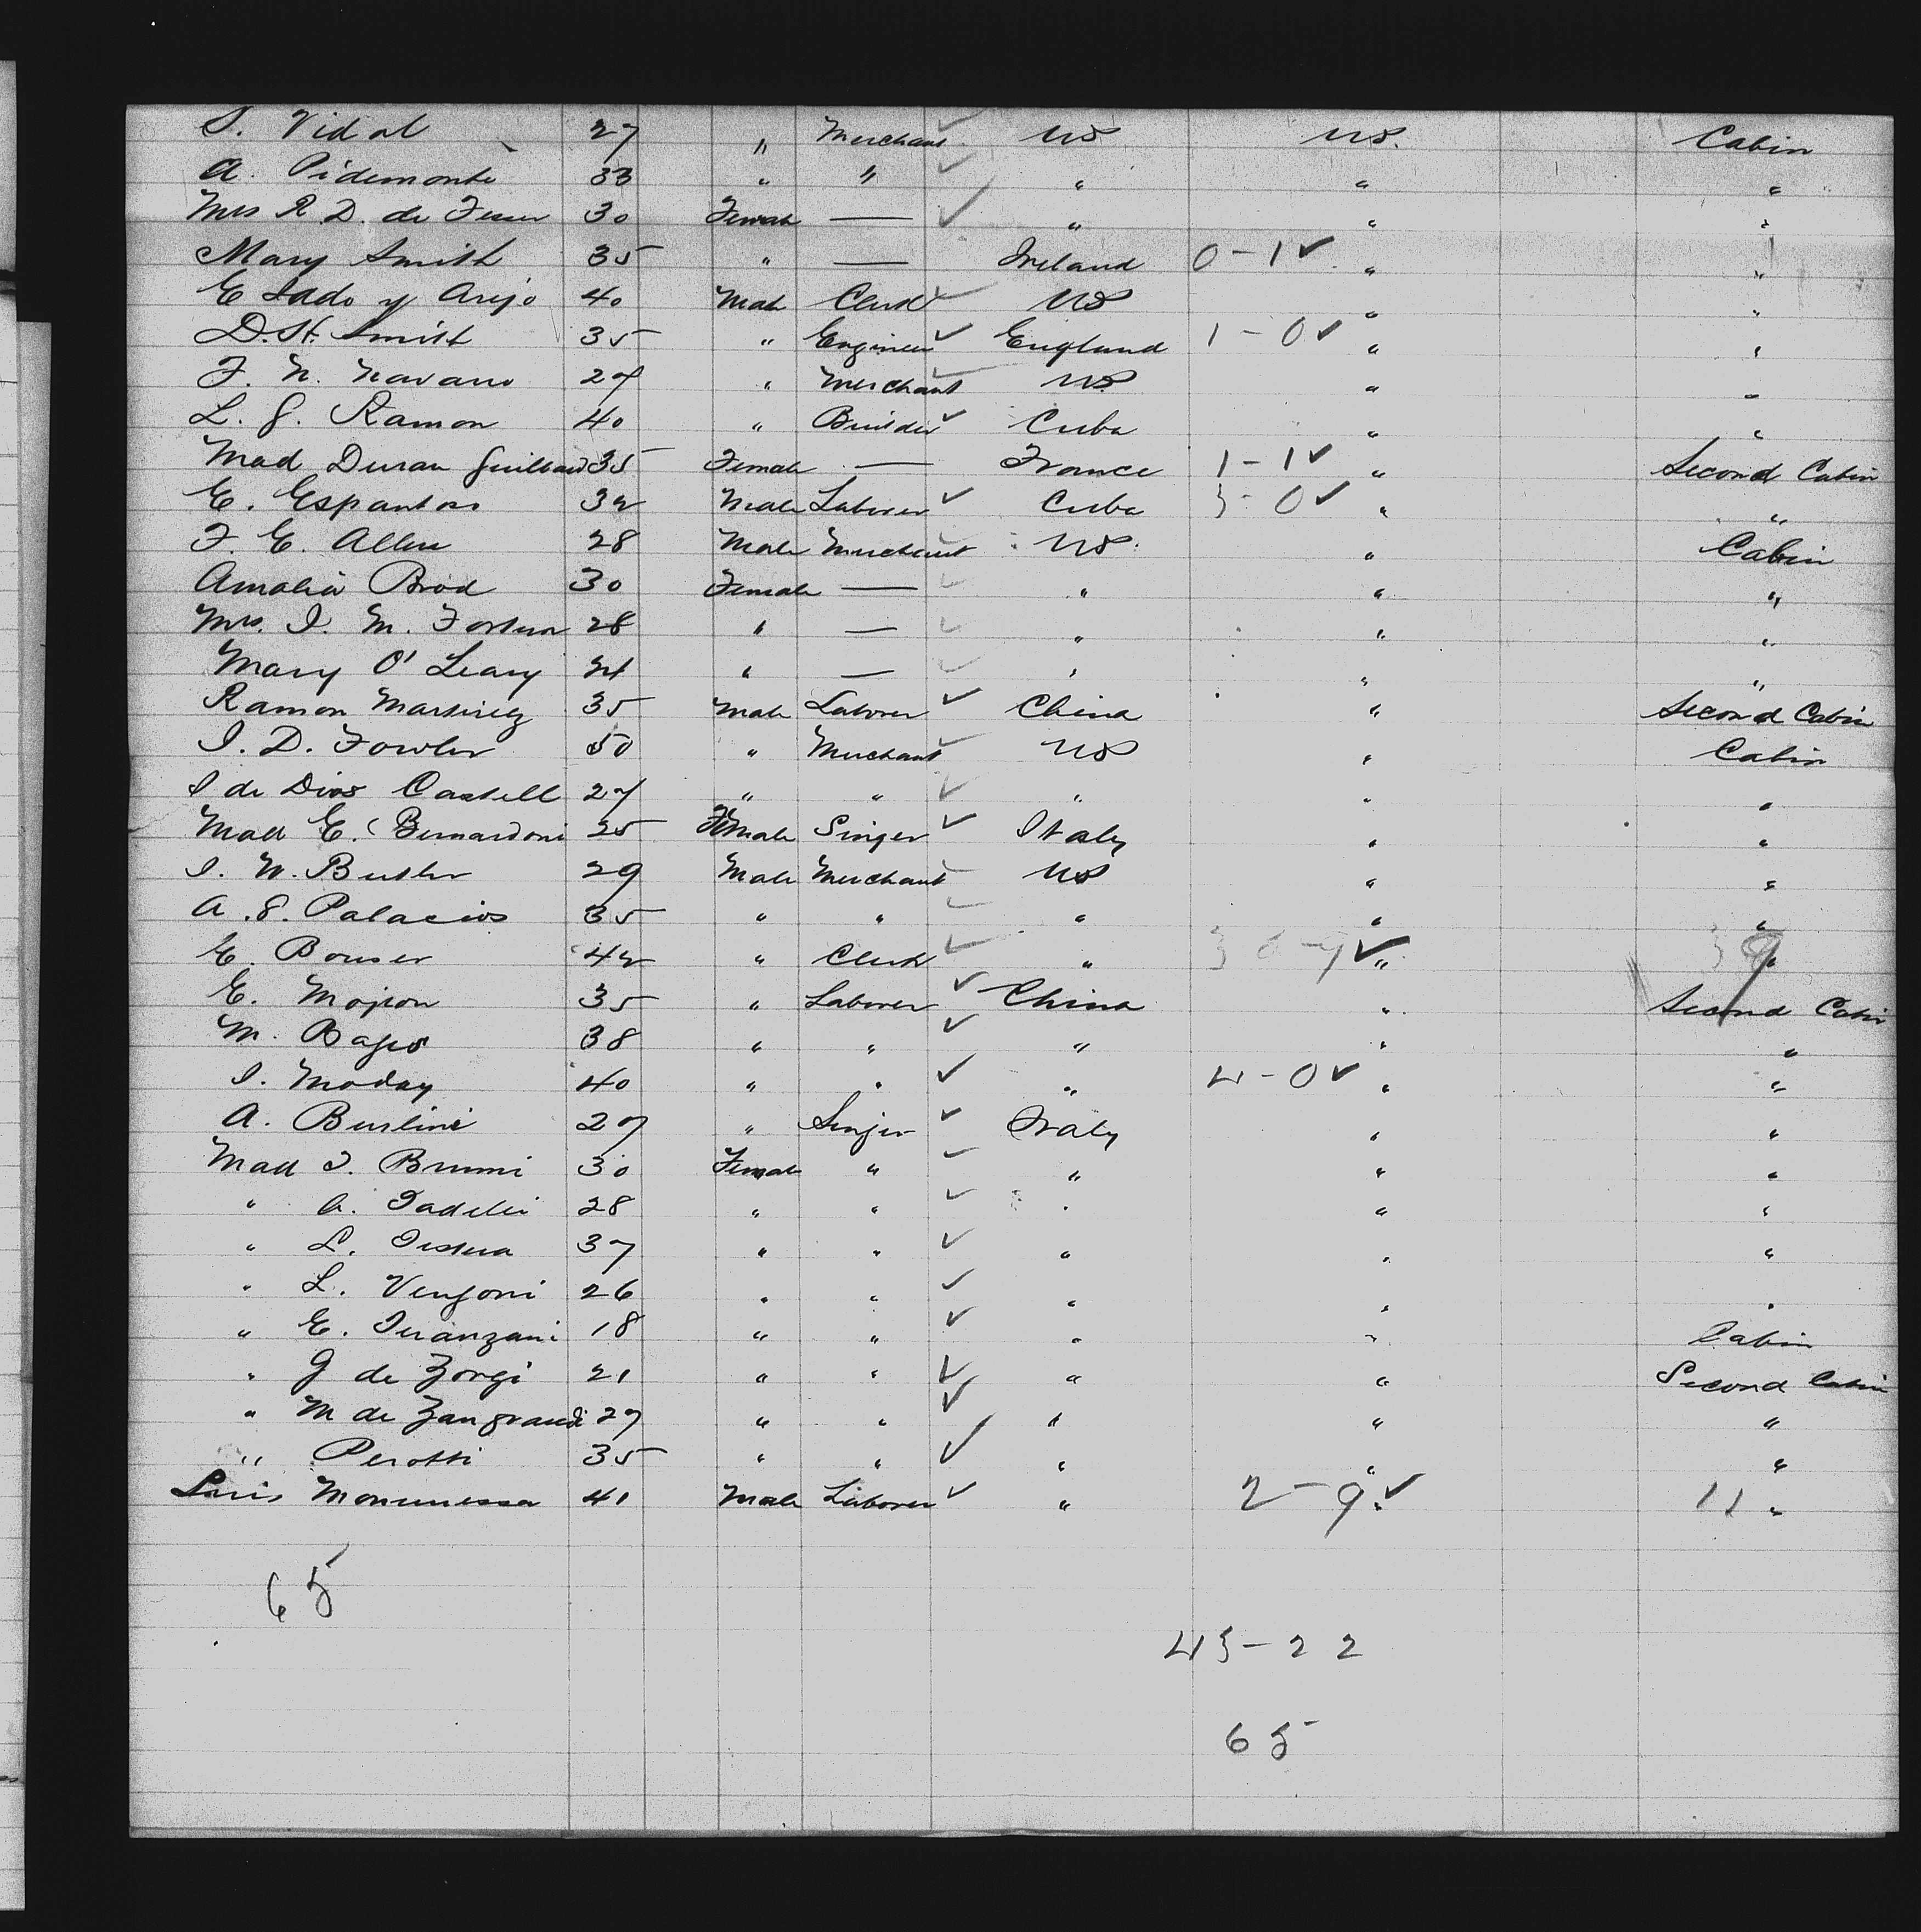 S. Vidal 27 " Merchant US US. Cabin
A. Pidemonte 33 " " " " "
Mrs R D. de 30 Female — " " "
Mary Smith 35 " — Ireland 0-1 " "
E Lado y Arejo 40 Male Clerk US " "
D. H. Smith 35 " Engineer England 1-0 " "
F. N. Navaro 27 " Merchant US " "
L. G. Ramon 40 " Builder Cuba " "
Mad Duran 35 Female — France 1-1 " Second Cabin
E. 32 Male Laborer Cuba 3-0 " "
F. E. Allen 28 Male Merchant US " Cabin
Amalia Brod 30 Female — " " "
Mrs. I. M. 28 " — " " "
Mary O'Leary 24 " — " " "
Ramon Martinez 35 Male Laborer China " Second Cabin
I. D. Fowler 50 " Merchant US " Cabin
I de Dios Castell 27 " " " " "
Mad E. Bernardoni 25 Female Singer Italy " "
I. W. Butler 29 Male Merchant US " "
A. S. Palacios 35 " " " " "
E. Bouser 42 " Clerk " " "
E. Mojion 35 " Laborer China " Second Cabin
M. 38 " " " " "
I. Moday 40 " " " 4-0 " "
A. Burlini 27 " Singer Italy " "
Mad I. Brunni 30 Female " " " "
" A. 28 " " " " "
" L. 37 " " " " "
" L. Vengoni 26 " " " " "
" E. 18 " " " " Cabin
" G de Zorgi 21 " " " " Second Cabin
" M de Zangrandi 27 " " " " "
" Perotti 35 " " " " "
Luis 41 Male Laborer " 2-9 " 11 "
65
43-22
65